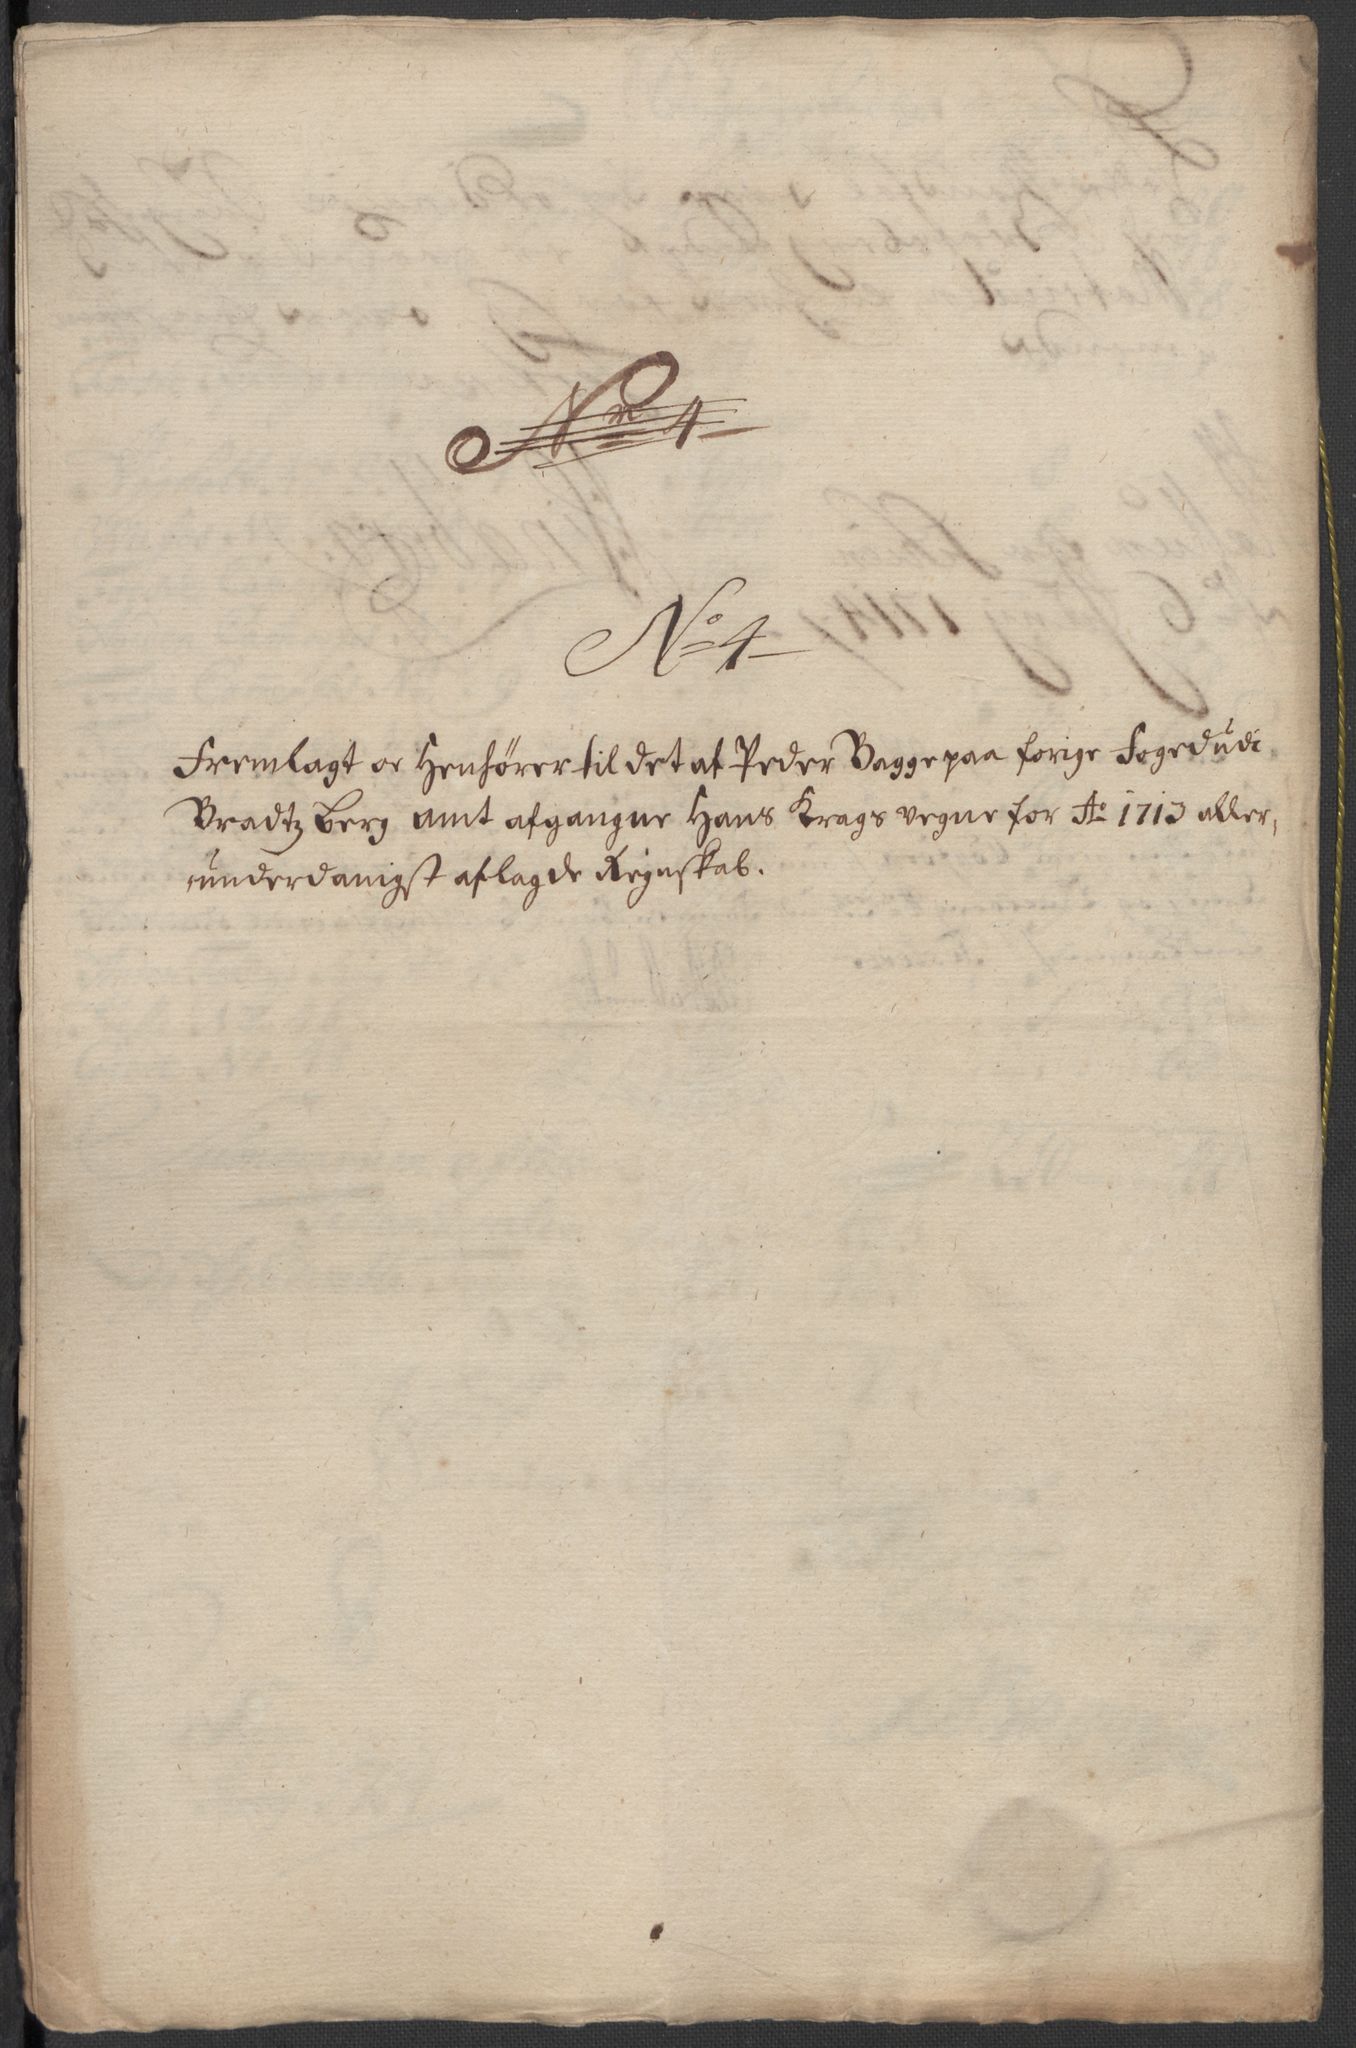 Nr 4
No 4
Fremlagt oc Henhører til det af Peder Bagge paa forige Foged udi
Bradtzberg amt afgangne Hans Krags vegne for Ao 1713 aller-
underdanigst aflagde Regnskab.